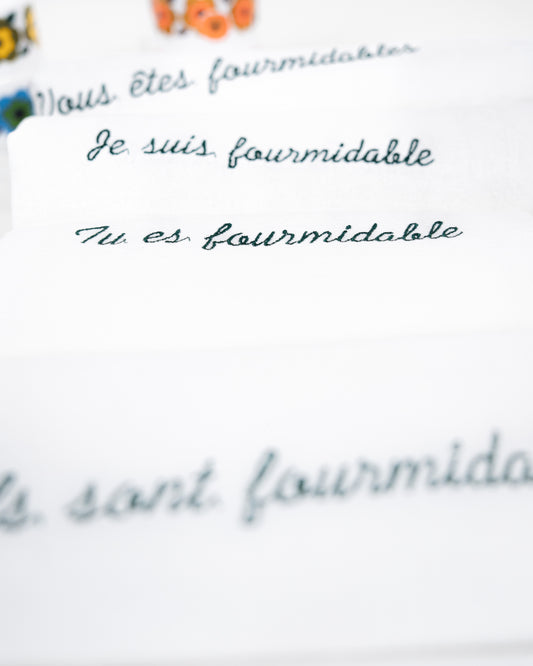 Vous êtes fourmidables
Je suis fourmidable
Tu es fourmidable
sont fourmida